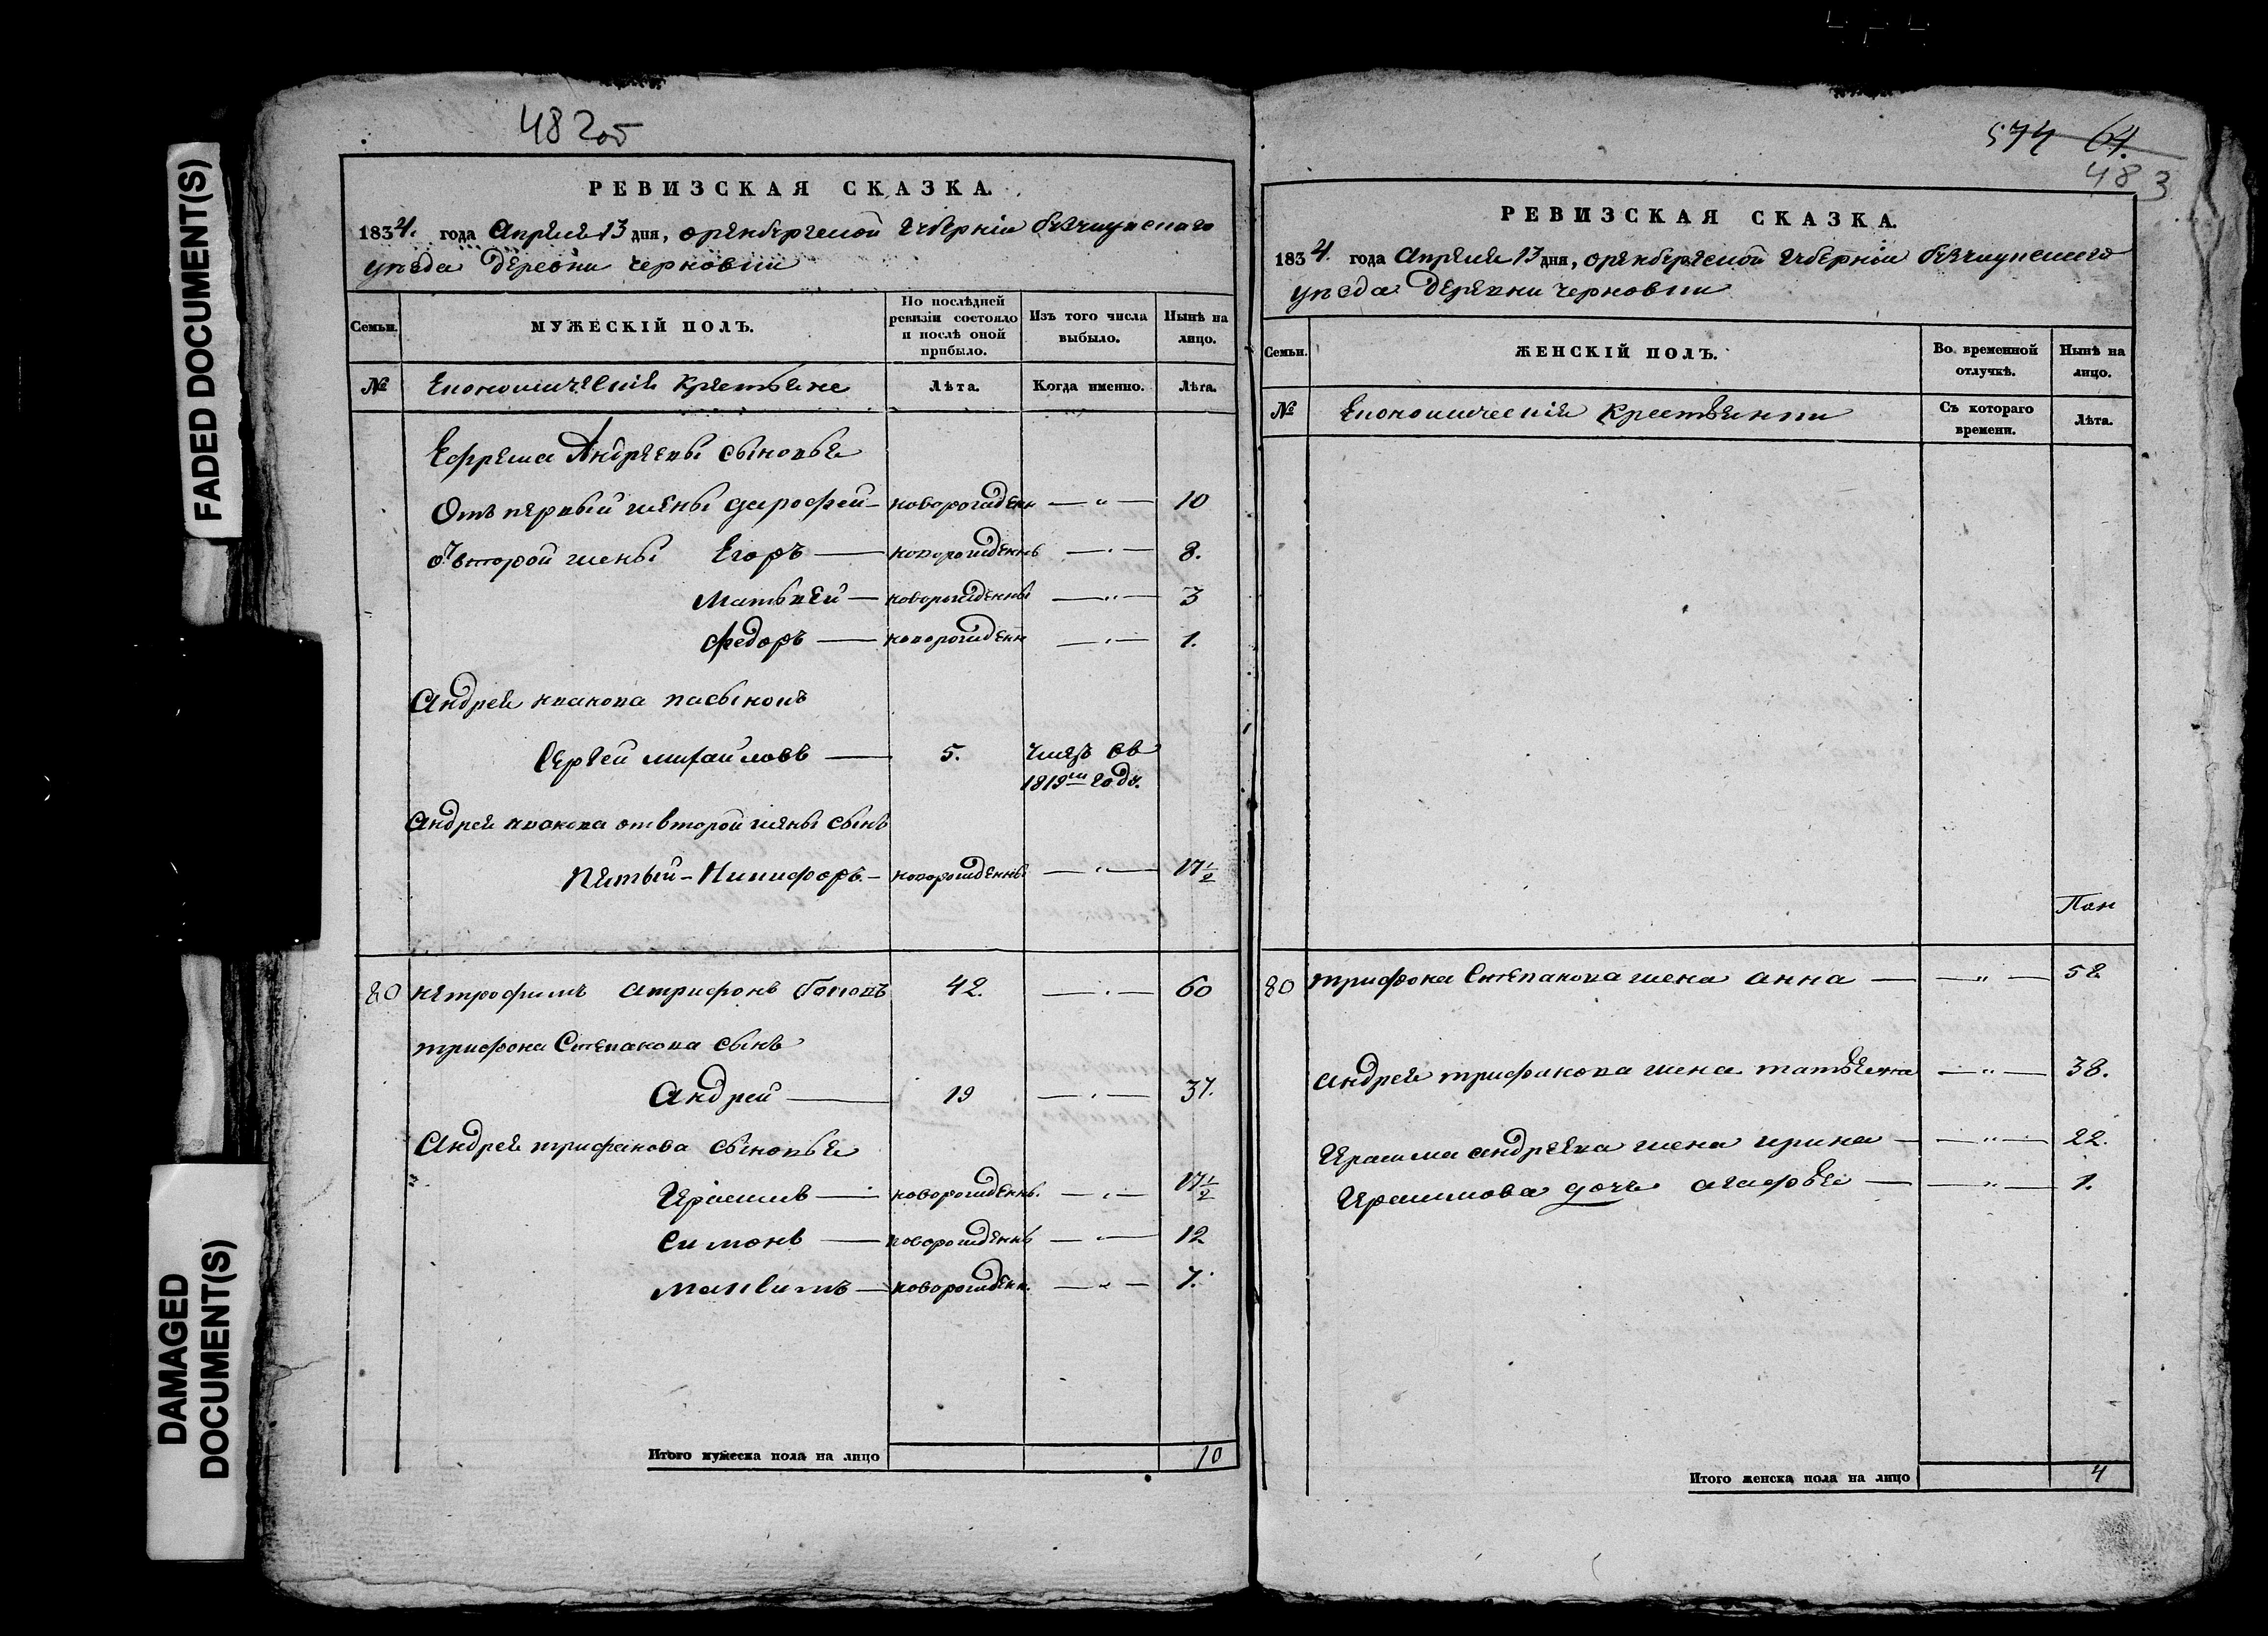 FADED DOCUMENT(S)
DAMAGED DOCUMENT(S)
482об
РЕВИЗСКАЯ СКАЗКА.
1834. года Апреля 13 дня, оренбургской губернiи
уезда деревни черновки
Семьи.
МУЖЕСКІЙ ПОЛЪ.
По послѣдней ревизіи состояло и послѣ оной прибыло.
Изъ того числа выбыло.
Нынѣ на лицо.
№
Економическiе крестьяне
Лѣта.
Когда именно.
Лѣта.
Ефрема Андреевы сыновья
Отъ первый жены дарофей — новорожден — " — 10
отъ второй жены Егоръ — новорожденъ — " — 8.
Матьвей — новорожденны — " — 3
Федоръ — новорожден — " — 1.
Андрея пасынокъ
Сергей михайловъ — 5.
1819м году.
Андрея от второй жены сынъ
Пятый - Никифоръ. — новорожденны — " — 17 1/2
80 трифонъ 42. — " — 60
трифона Степанова сынъ
Андрей — 19 — " — 37.
Андрея трифанова сыновья
новорожденнъ. — " — 17 1/2
Симонъ — новорожденнъ — " — 12
новорожден. — " — 7.
Итого мужеска пола на лицо 10
574 64.
483
РЕВИЗСКАЯ СКАЗКА.
1834. года Апреля 13 дня, оренбургской губернiи
уезда деревни черновки
Семьи.
ЖЕНСКІЙ ПОЛЪ.
Во временной отлучкѣ.
Нынѣ на лицо.
№
Економическiя крестьянки
Съ котораго времени.
Лѣта.
80 трифона Степанова жена анна — " — 58
андрея трифанова жена татьяна — " — 38.
андреева жена ирина — " — 22.
дочь агафья — " — 1.
Итого женска пола на лицо 4